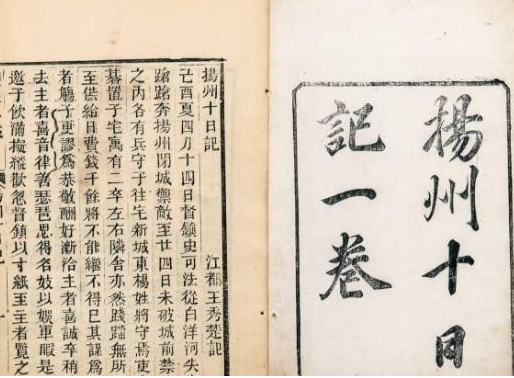 揚州十日
記一卷
揚州十日記
江都王秀楚記
己酉夏四月十四日督鎮史可法從白洋河失
蹌蹌奔揚州閉城禦敵至廿四日未破城前禁
之內各有兵守予住宅新城東楊姓將守焉吏
碁置予宅寓有二卒左右隣舍亦然踐踏無所
至供給日費錢千餘將不能繼不得已共謀爲
者觴予更謬爲恭敬酬好漸洽主者喜誡卒稍
去主者喜音律善琵琶思得名妓以娛軍暇是
邀予飲滿擬縱歡忽督鎮以寸紙至主者覽之